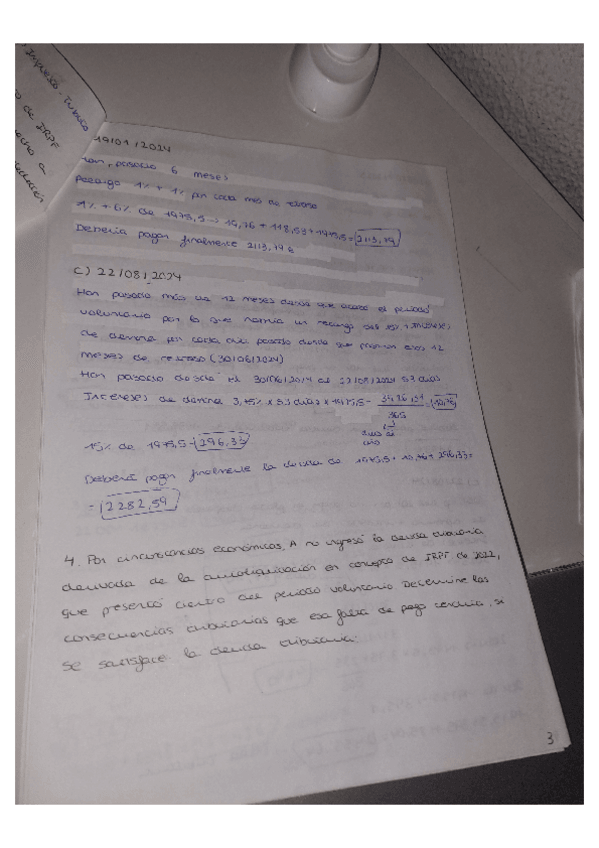 Impuesto. Tributo
de IRPF
a
19/01/2024
Han pasado 6 meses
Recargo 1% + 1% por cada mes de retraso
1% + 6% de 1975,5 → 19,76 + 118,53 + 1975,5 = 2113,79
Debería pagar finalmente 2113,79 €
C) 22/08/2024
Han pasado más de 12 meses desde que acabó el periodo
voluntario por lo que habría un recargo del 15% + intereses
de demora por cada día pasado desde que pasaron esos 12
meses de retraso (30/06/2024)
Han pasado desde el 30/06/2024 al 22/08/2024 53 días
Intereses de demora 3,75% x 53 días x 1975,5 =
365
15% de 1975,5 = 296,33
Deberá pagar finalmente la deuda de 1975,5 + 10,76 + 296,33 =
= 2282,59
4. Por circunstancias económicas, A no ingresó la deuda tributaria
derivada de la autoliquidación en concepto de IRPF de 2022,
que presentó dentro del periodo voluntario. Determine las
consecuencias tributarias que esa falta de pago conlleva, si
se satisface la deuda tributaria:
3